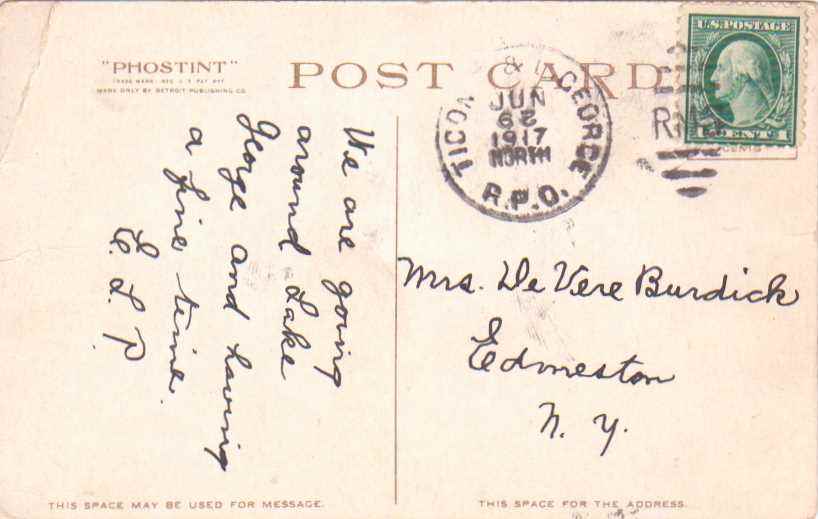 "PHOSTINT"
TRADE MARK REG. U.S. PAT. OFF.
MADE ONLY BY DETROIT PUBLISHING CO.
POST CARD
TICON & L. GEORGE
JUN
1917
NORTH
R.P.O.
U.S. POSTAGE
We are going
around Lake
George and having
a fine time.
E. L. P.
Mrs. De Vere Burdick
Edmeston
N. Y.
THIS SPACE MAY BE USED FOR MESSAGE.
THIS SPACE FOR THE ADDRESS.